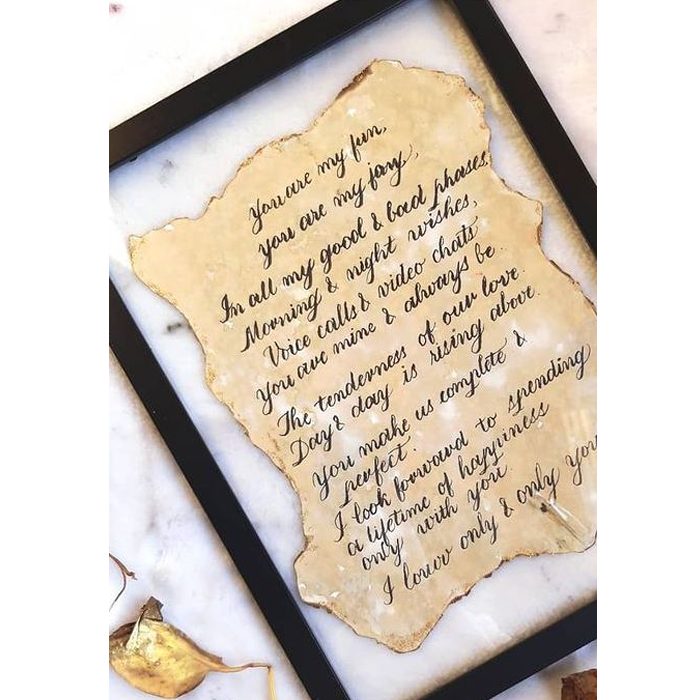 You are my fun,
you are my joy,
In all my good & bad phases,
Morning & night wishes,
Voice calls & video chats
You are mine & always be.
The tenderness of our love.
Day & day is rising above.
You make us complete &
perfect.
I look forward to spending
a lifetime of happiness
only with you.
I love only & only you